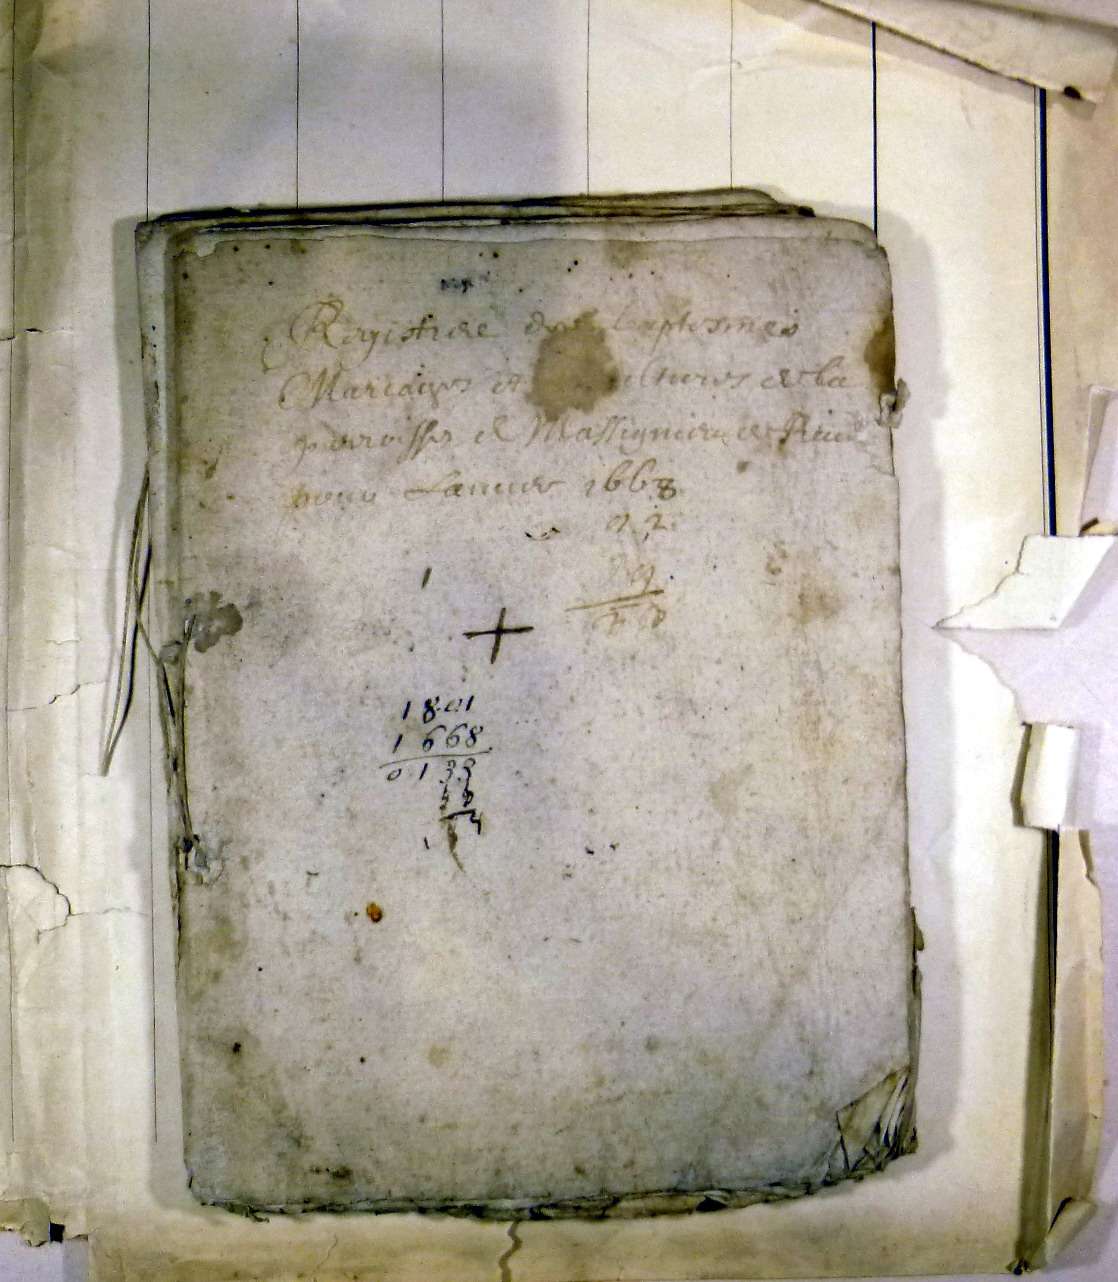 Registre des baptesmes
Mariages et ultures de la
parroisse de Massignieu de Rive
pour Lannee 1668
1
+
1801
1668
0133